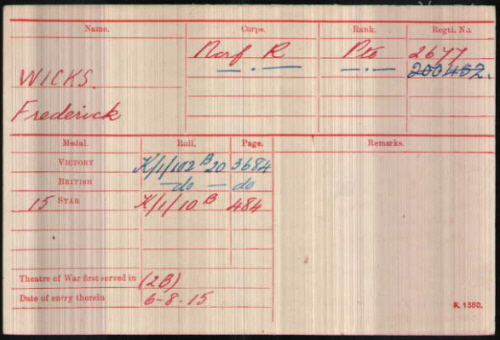 Name. Corps. Rank. Regtl. No.
Norf R Pte 2677
WICKS. — . — — . — 200452.
Frederick
Medal. Roll. Page. Remarks.
VICTORY K/1/102 B20 3684
BRITISH — do — do
15 STAR K/1/10 B 484
Theatre of War first served in (2B)
Date of entry therein 6-8-15
K. 1380.